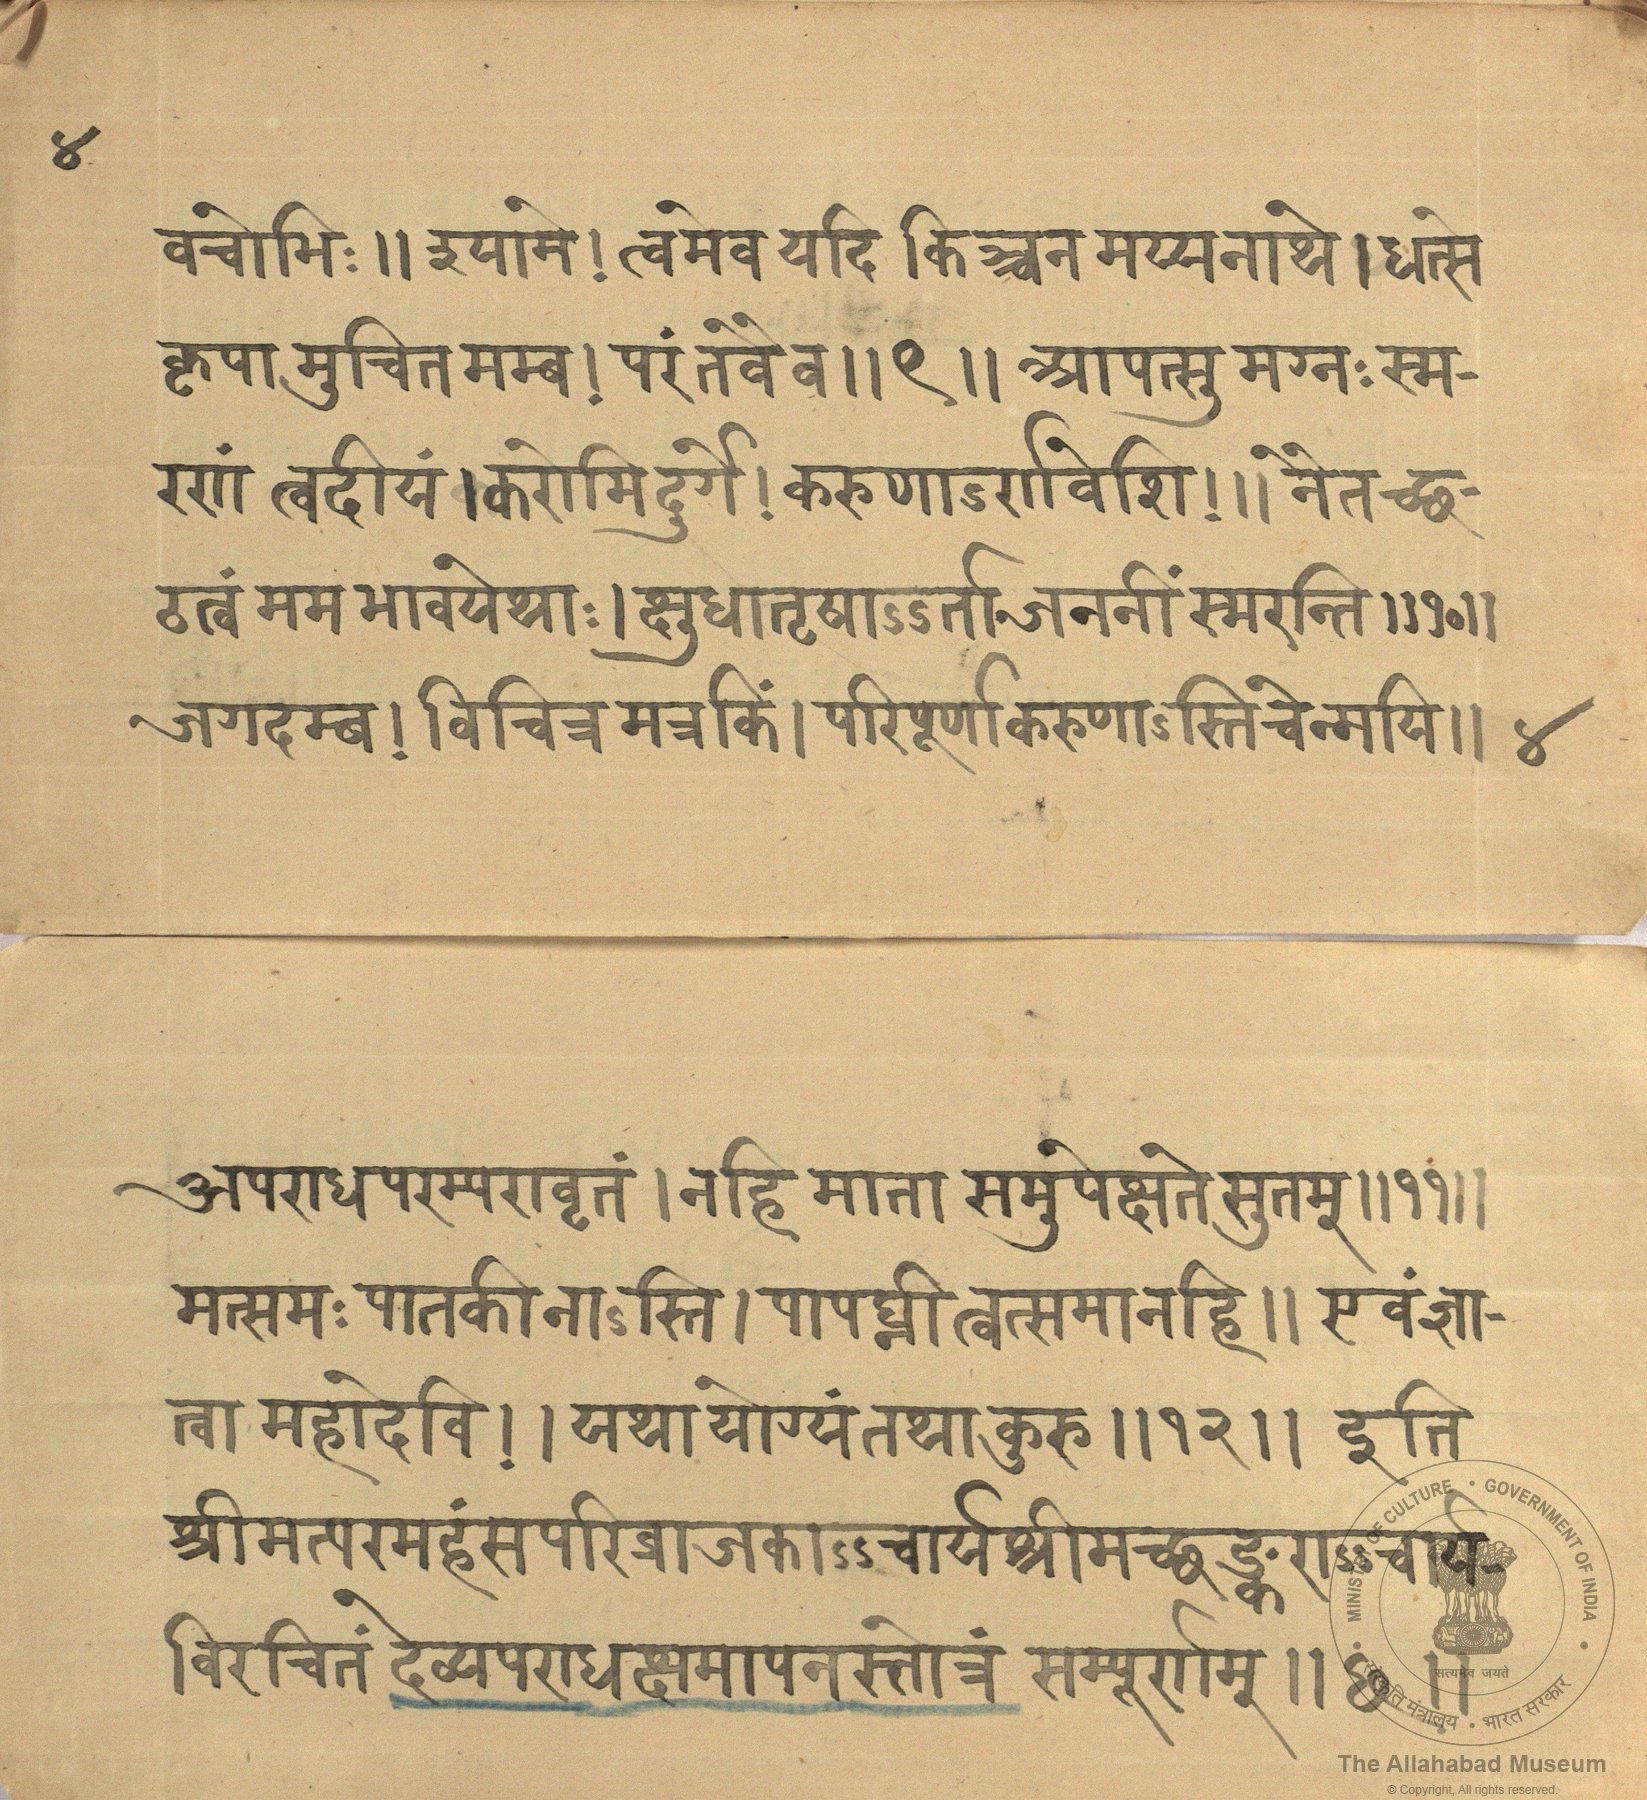 ४
वचोभिः ॥ श्यामे ! त्वमेव यदि किञ्चन मय्यनाथे । धत्से
कृपामुचितमम्ब ! परं तवैव ॥ ९ ॥ आपत्सु मग्नः स्म-
रणं त्वदीयं । करोमि दुर्गे ! करुणाऽर्णवेशि ! ॥ नैतच्छ-
ठत्वं मम भावयेथाः । क्षुधातृषाऽऽर्ता जननीं स्मरन्ति ॥१०॥
जगदम्ब ! विचित्रमत्र किं । परिपूर्णा करुणाऽस्ति चेन्मयि ॥ ४
अपराधपरम्परावृतं । नहि माता समुपेक्षते सुतम् ॥११॥
मत्समः पातकी नाऽस्ति । पापघ्नी त्वत्समा नहि ॥ एवं ज्ञा-
त्वा महादेवि ! । यथा योग्यं तथा कुरु ॥१२॥ इति
श्रीमत्परमहंसपरिव्राजकाऽऽचार्यश्रीमच्छङ्कराऽऽचार्य-
विरचितं देव्यपराधक्षमापनस्तोत्रं सम्पूर्णम् ॥ ६७ ॥
MINISTRY OF CULTURE • GOVERNMENT OF INDIA •
सत्यमेव जयते
संस्कृति मंत्रालय • भारत सरकार
The Allahabad Museum
© Copyright, All rights reserved.